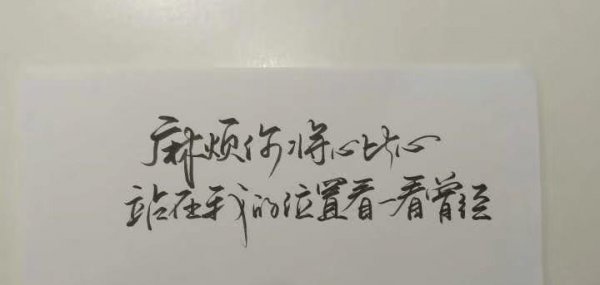 麻烦你将心比心
站在我的位置看一看曾经